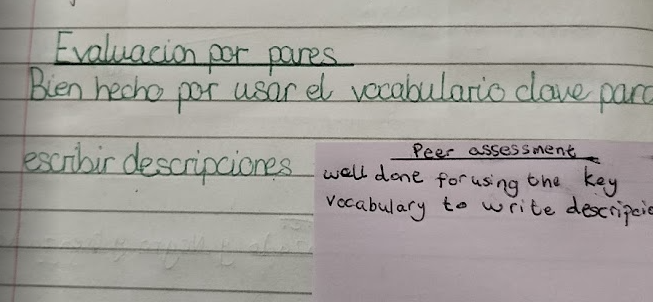 Evaluacion por pares
Bien hecho por usar el vocabulario clave para
escribir descripciones
Peer assessment
well done for using the key
vocabulary to write descripcio